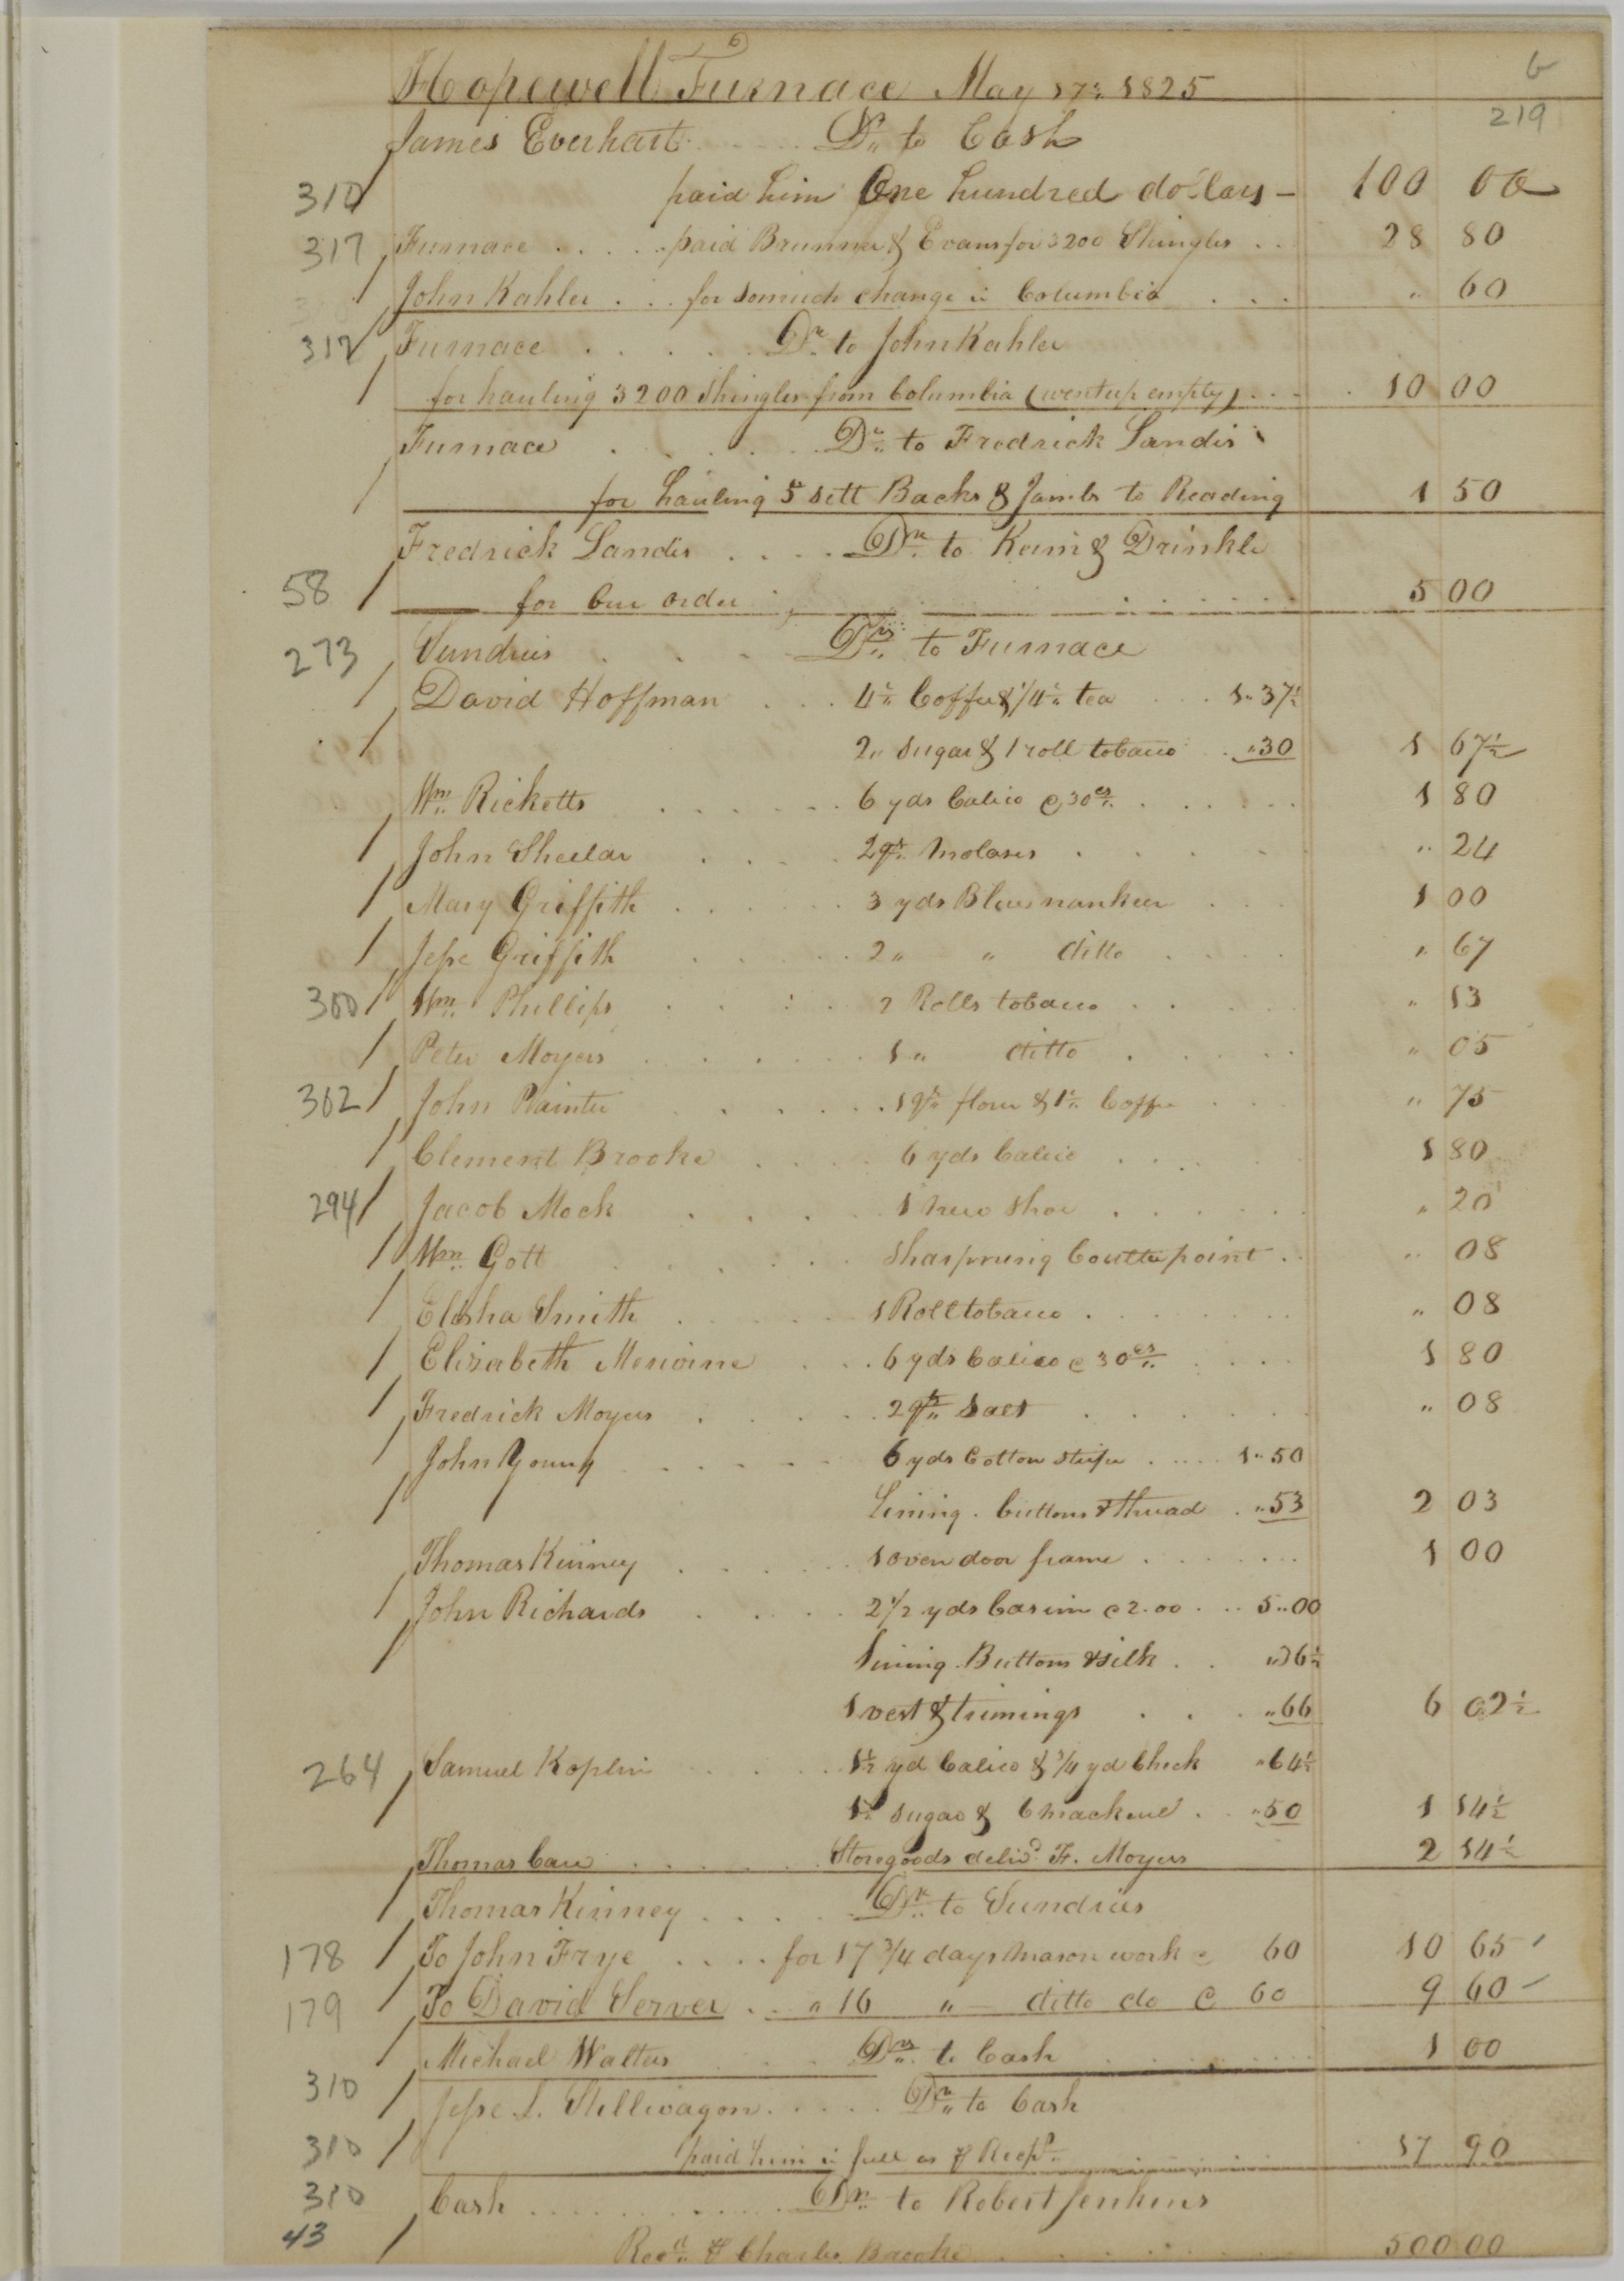 6
6
Hopewell Furnace May 17th 1825
219
James Everhart Dr. to Cash
310 paid him One hundred dollars 100 00
317 Furnace paid Brunner & Evans for 3200 Shingles 28 80
John Kahler for somuch change in Columbia " 60
317 Furnace Dr. to John Kahler
for hauling 3200 Shingles from Columbia (went up empty) 10 00
Furnace Dr. to Fredrick Landis
for hauling 5 sett Backs & Jambs to Reading 1 50
Fredrick Landis Dr. to Keim & Drinkle
58 for our order 5 00
273 Sundries Drs. to Furnace
David Hoffman 4 lb Coffee & 1/4 lb tea 1.. 37 1/2
2 " sugar & 1 roll tobacco ..30 1 67 1/2
Wm. Ricketts 6 yds Calico @ 30 cs. 1 80
John Sheelar 2 qts. Molases " 24
Mary Griffith 3 yds Blue nankeen 1 00
Jesse Griffith 2 " " ditto " 67
300 Wm. Phillips 2 Rolls tobacco " 13
Peter Moyers 1 " ditto " 05
302 John Painter 1 qr. flour & 1 lb Coffee " 75
Clement Brooke 6 yds Calico 1 80
294 Jacob Mock 1 new shoe " 20
Wm. Gott sharpning Coulter point " 08
Elisha Smith 1 Roll tobacco " 08
Elizabeth 6 yds Calico @ 30 cs. 1 80
Fredrick Moyers 2 qts. Salt " 08
John Young 6 yds Cotton stripe 1.. 50
Lining. buttons & thread ..53 2 03
Thomas Kinney 1 oven door frame 1 00
John Richards 2 1/2 yds @ 2.00 5..00
Lining. Buttons & silk ..36 1/2
1 vest & trimings ..66 6 02 1/2
264 Samuel Koplin 1 1/2 yd Calico & 3/4 yd Check ..64 1/2
sugar & 6 mackerel ..50 1 14 1/2
Thomas Care Storegoods delivd. F. Moyers 2 14 1/2
Thomas Kinney Dr. to Sundries
178 To John Frye for 17 3/4 days Mason work @ 60 10 65
179 To David Server " 16 " ditto do @ 60 9 60
Michael Walters Dr. to Cash 1 00
310 Jesse L. Stillwagon Dr. to Cash
310 paid him in full as pr Recpt. 17 90
310 Cash Dr. to Robert Jenkins
43 Recd. pr Charles Brooke 500 00